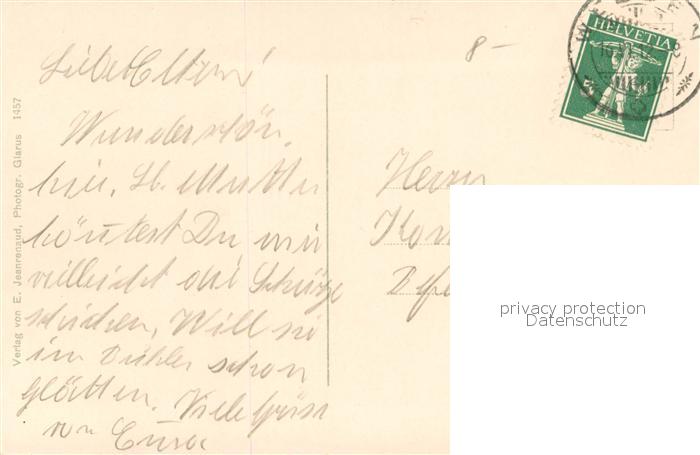 8 –
HELVETIA
Liebe Eltern!
Wunderschön
hier. Lb. Mutter
könntest Du mir
vielleicht die Schürze
schicken, Will sie
im Bühler schon
glätten. Viele Grüsse
von
Herrn
Verlag von E. Jeanrenaud, Photogr. Glarus 1457
privacy protection
Datenschutz